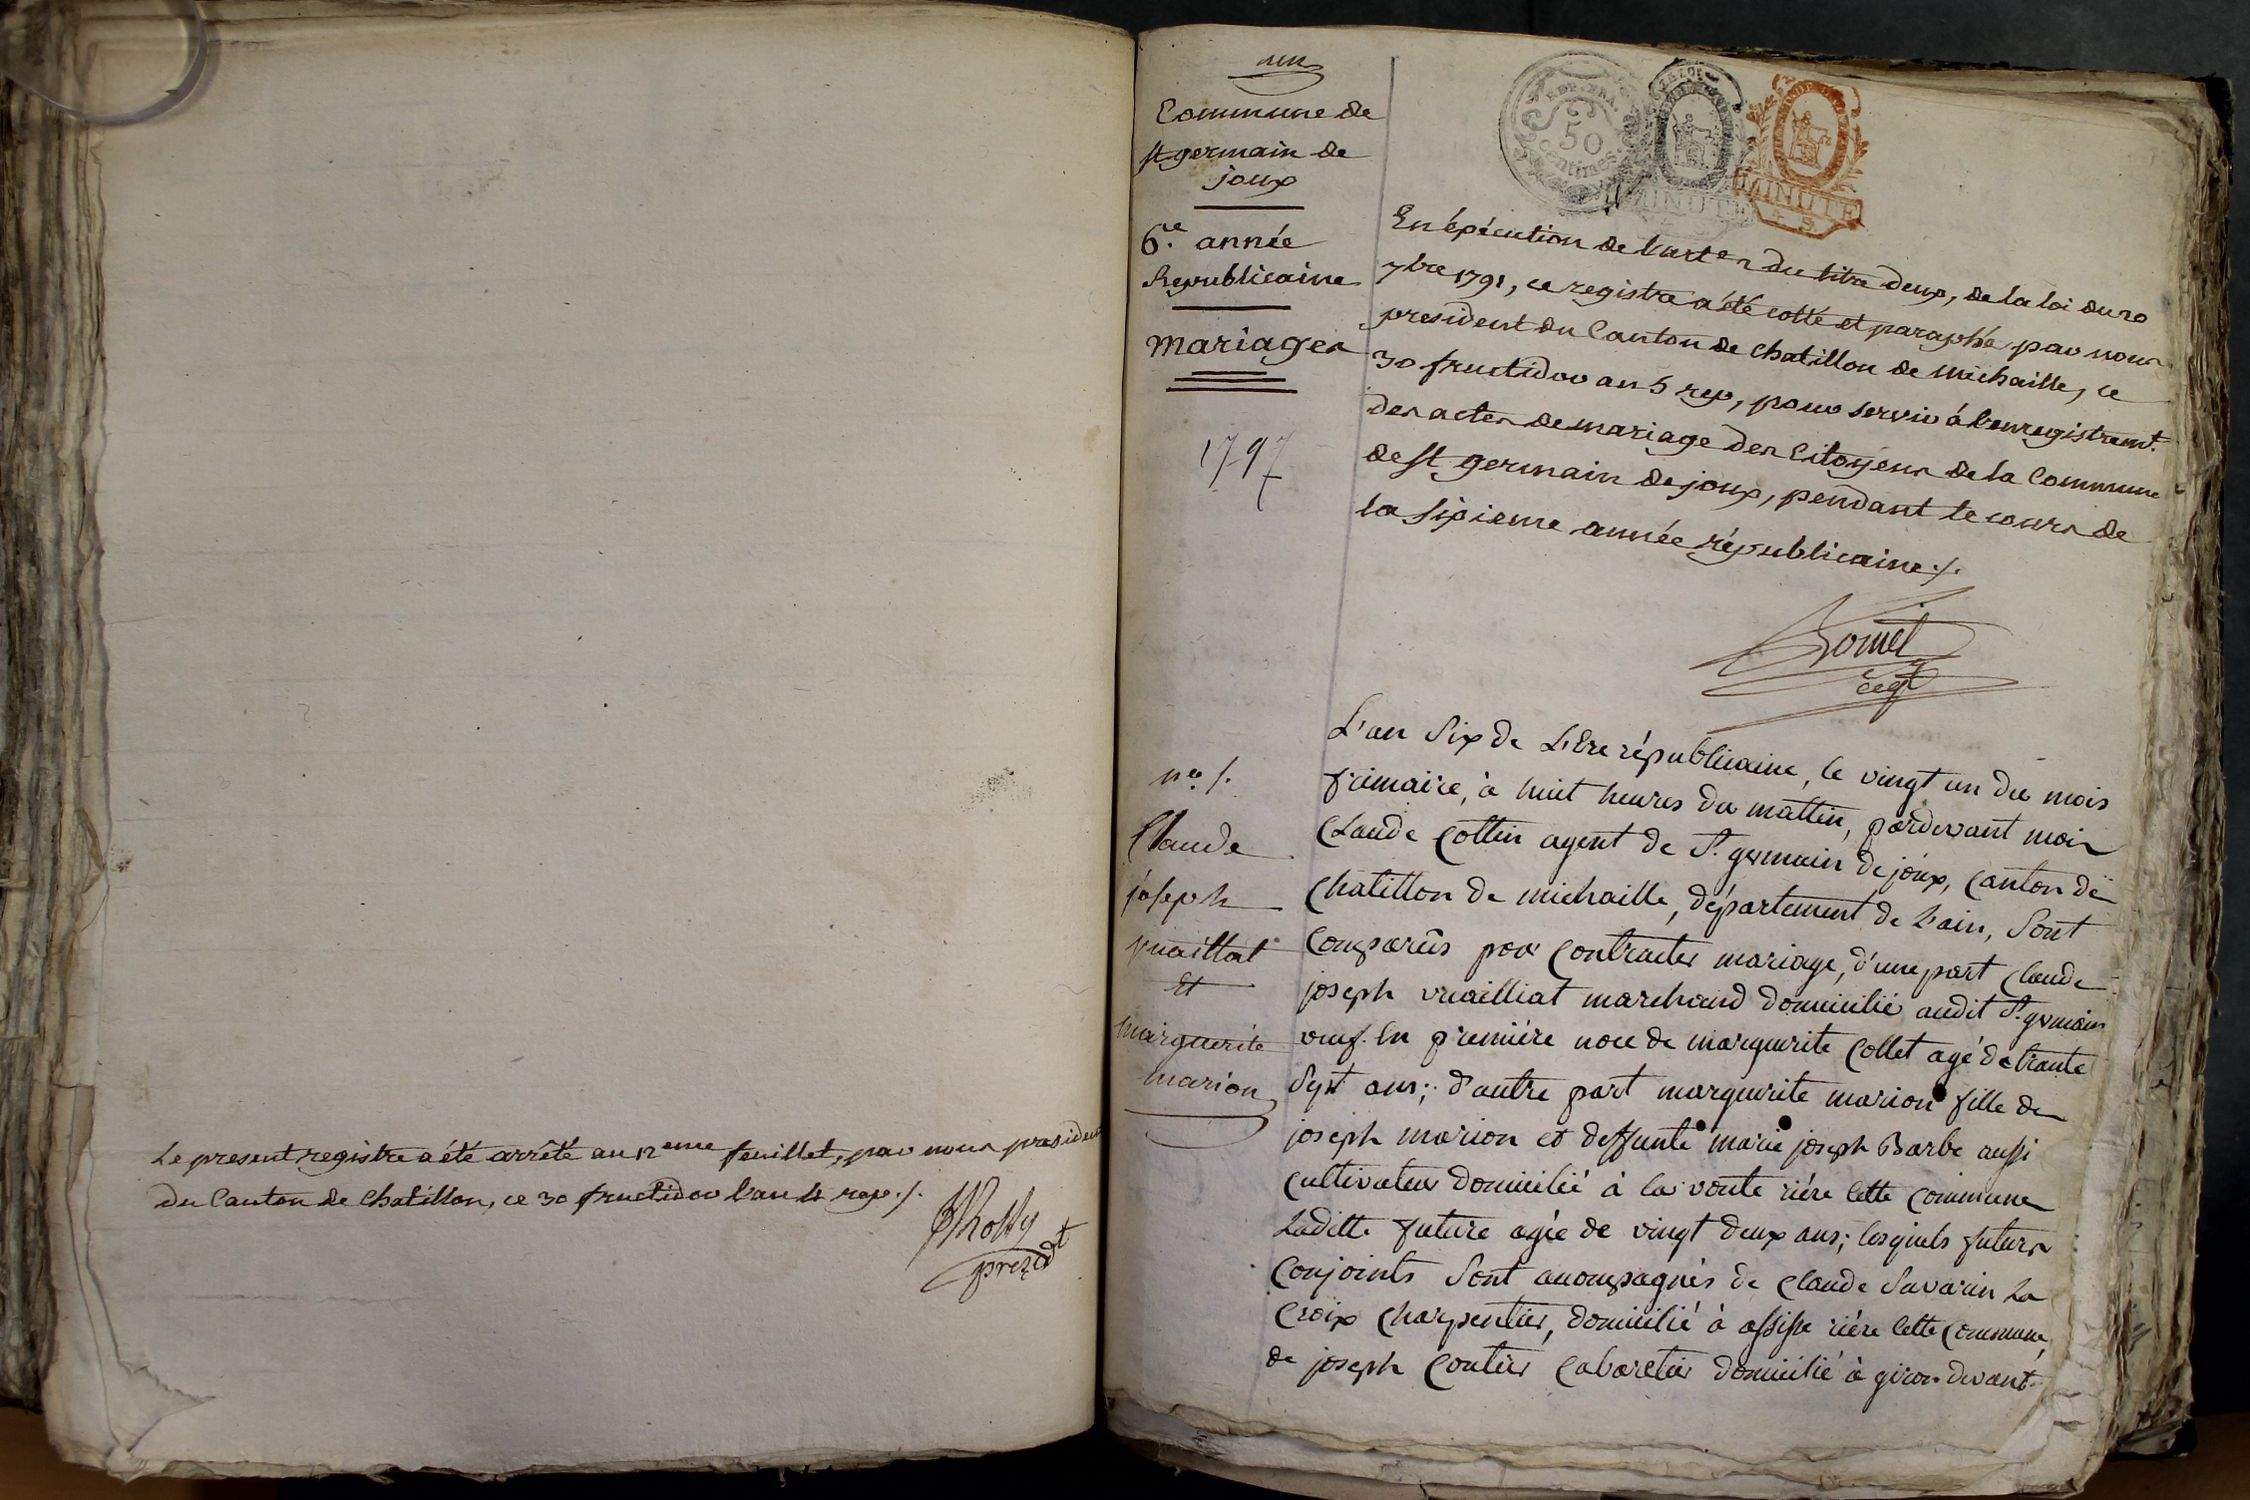 Le present registre a été arrêté au 12eme feuillet, par nous president
du Canton de Chatillon, ce 30 fructidor l'an 4 rep./.
presidt
un
Commune de
st germain de
joux
6.e année
Republicaine
Mariages
1797
REP. FRA.
50
centimes
MINUTE
MINUTE
En éxécution de l'art. 2 du titre deux, de la loi du 20
7bre 1791, ce registre a été cotté et paraphé par nous
president du Canton de Chatillon de Michaille, ce
30 fructidor an 5 rep, pour servir à l'enregistremt.
des actes de mariage des Citoyens de la Commune
de st germain de joux, pendant le cours de
la sixieme année républicaine./.
n.o 1.
Claude
joseph
vuaillat
Et
marguerite
marion
L'an Six de L'Ere républicaine, le vingt un du mois
frimaire, à huit heures du mattin, pardevant moi
Claude Cottin agent de St. germain de joux, Canton de
Chatillon de michaille, département de L'ain, Sont
Comparûs pour Contracter mariage, d'une part Claude
joseph vuailliat marchand domicilié audit St. germain
veuf. En première noce de marguerite Collet agé de trante
Sept ans; d'autre part marguerite marion fille de
joseph marion et deffunte marie joseph Barbe aussi
Cultivateur domicilié à la voute rière Cette Commune
Laditte future agée de vingt deux ans; lesquels futurs
Conjoints Sont acompagnés de Claude Savarin La
Croix Charpentier, domicilié à assise rière Cette Commune,
de joseph Coutier Cabaretier domicilié à giron devant